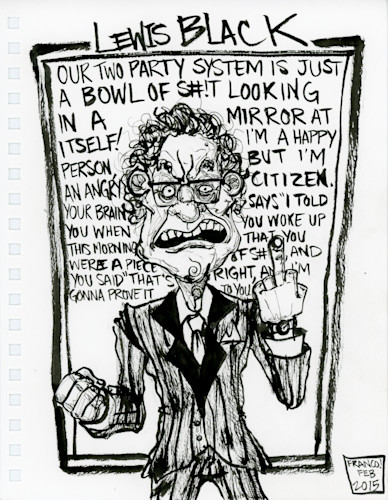 LEWIS BLACK
OUR TWO PARTY SYSTEM IS JUST
A BOWL OF S#!T LOOKING
IN A MIRROR AT
ITSELF! I'M A HAPPY
PERSON, BUT I'M
AN ANGRY CITIZEN.
YOUR BRAIN SAYS "I TOLD
YOU WHEN YOU WOKE UP
THIS MORNING THAT YOU
WERE A PIECE OF S#! AND
YOU SAID" THAT'S RIGHT, AND I'M
GONNA PROVE IT TO YOU
FRANCO!
FEB
2015